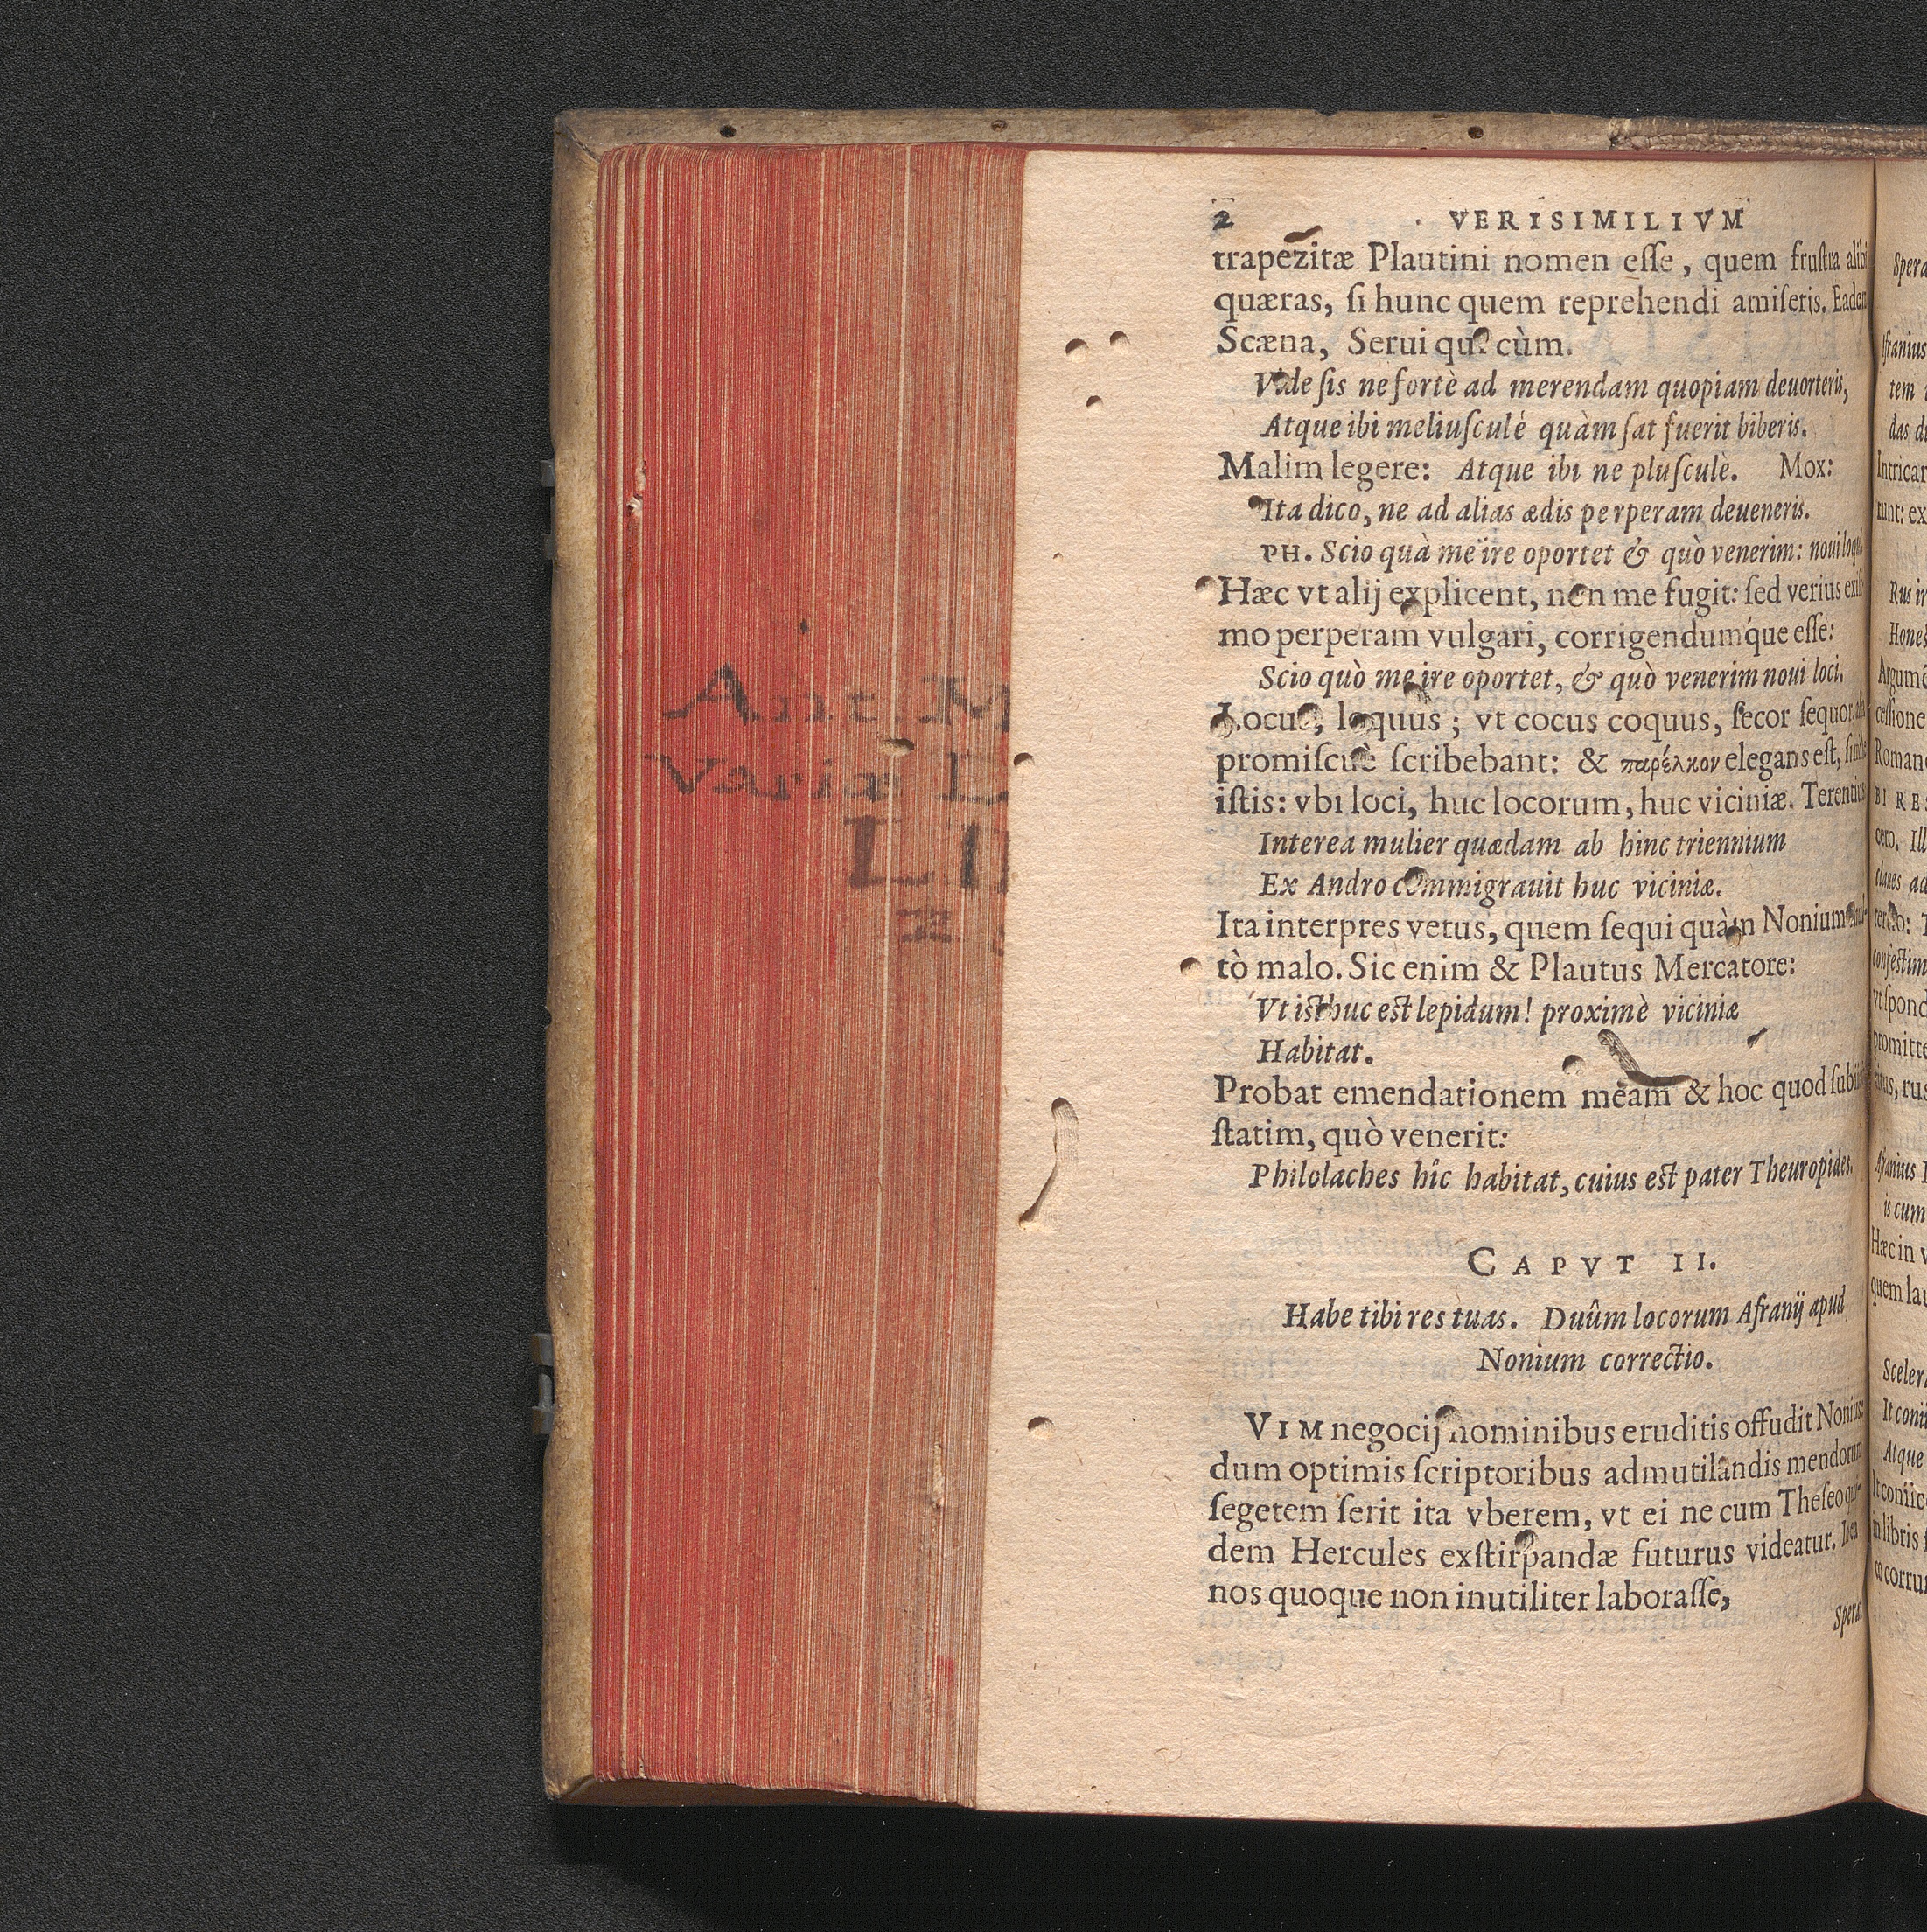 2 VERISIMILIVM
trapezitæ Plautini nomen eſſe, quem fruſtra alibi
quæras, ſi hunc quem reprehendi amiſeris. Eadem
Scæna, Serui cùm.
Vide ſis ne fortè ad merendam quopiam deuorteris,
Atque ibi meliuſculé quàm ſat fuerit biberis.
Malim legere: Atque ibi ne pluſculè. Mox:
Ita dico, ne ad alias ædis perperam deueneris.
PH. Scio quà me ire oportet & quò venerim: noui
Hæc vt alij explicent, non me fugit: ſed verius
mo perperam vulgari, corrigendumque eſſe:
Scio quò me ire oportet, & quò venerim noui loci.
Locus, loquus; vt cocus coquus, ſecor ſequor,
promiſcuè ſcribebant: & παρέλκον elegans eſt,
iſtis: vbi loci, huc locorum, huc viciniæ. Terentius
Interea mulier quædam ab hinc triennium
Ex Andro commigrauit huc viciniæ.
Ita interpres vetus, quem ſequi quàm Nonium
tò malo. Sic enim & Plautus Mercatore:
Vt iſthuc eſt lepidum! proximè viciniæ
Habitat.
Probat emendationem meam & hoc quod
ſtatim, quò venerit:
Philolaches hîc habitat, cuius eſt pater Theuropides.
CAPVT II.
Habe tibi res tuas. Duûm locorum Afranij apud
Nonium correctio.
VIM negocij nominibus eruditis offudit Nonius:
dum optimis ſcriptoribus admutilandis mendorum
ſegetem ſerit ita vberem, vt ei ne cum Theſeo
dem Hercules exſtirpandæ futurus videatur.
nos quoque non inutiliter laboraſſe,
Ant. M
Variæ L
LI